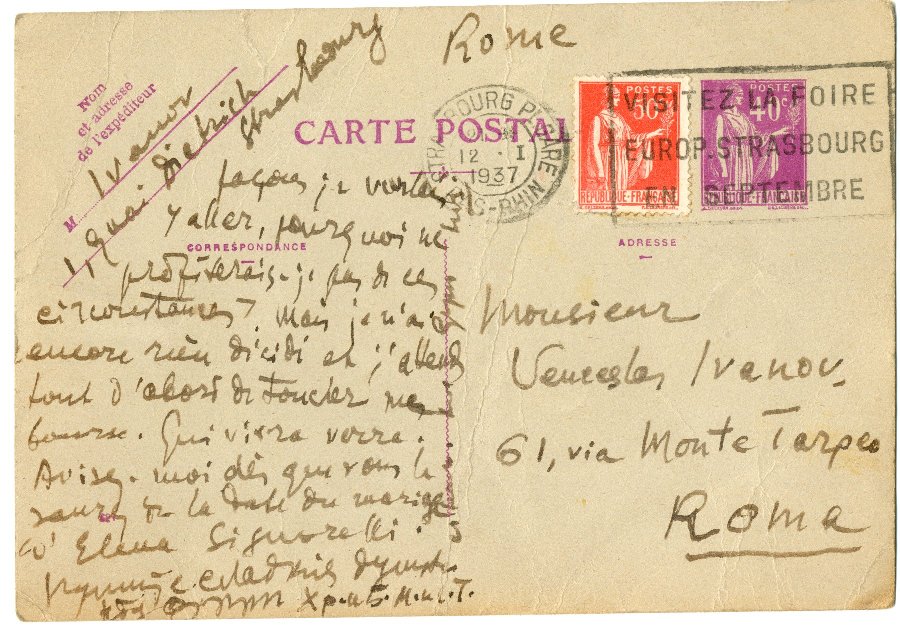 Rome
Nom
et adresse
de l'expéditeur
M. Ivanov
1, Quai Dietrich
Strasbourg
CARTE POSTALE
STRASBOURG Pl. GARE
12 · I
1937
BAS-RHIN
POSTES
50c
RÉPUBLIQUE-FRANÇAISE
POSTES
40c
RÉPUBLIQUE-FRANÇAISE
VISITEZ LA FOIRE
EUROP. STRASBOURG
EN SEPTEMBRE
CORRESPONDANCE
façon je
y aller, pourquoi ne
profiterais-je pas de ces
circonstances? Mais je n'ai
encore rien décidé et j'attends
tout d'abord de toucher mes
bourse. Qui vivra verra.
Avisez-moi dès que vous le
saurez de la date du mariage
d'Elena Signorelli.
ADRESSE
Monsieur
Venceslas Ivanov
61, via Monte Tarpeo
Roma